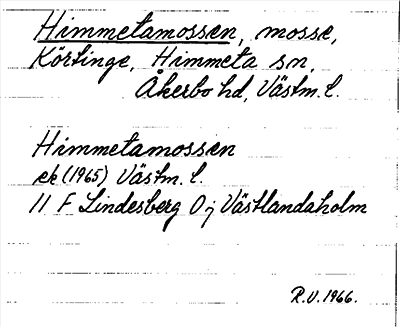 Himmetamossen, mosse,
Körtinge, Himmeta sn,
Åkerbo hd, Västm. l.
Himmetamossen
ek (1965) Västm. l.
11 F Lindesberg O j Västlandaholm
R.V. 1966.